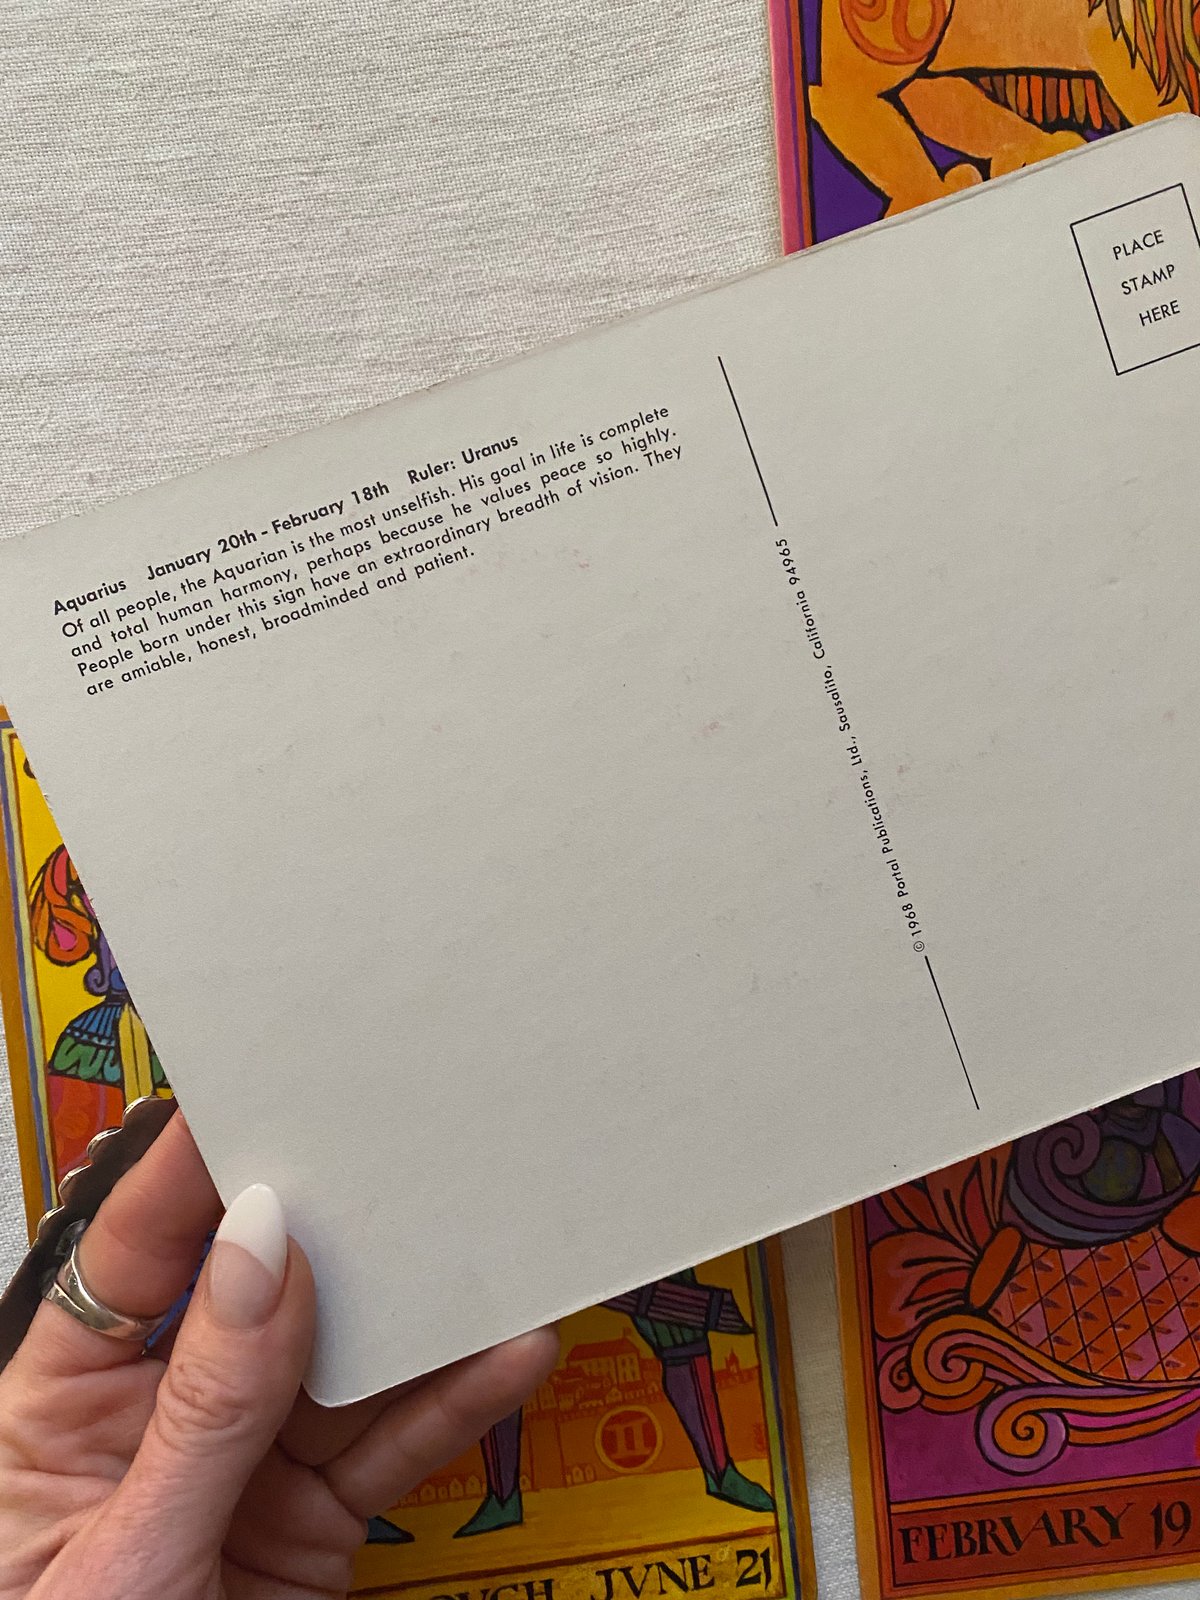 PLACE
STAMP
HERE
Aquarius January 20th - February 18th Ruler: Uranus
Of all people, the Aquarian is the most unselfish. His goal in life is complete
and total human harmony, perhaps because he values peace so highly.
People born under this sign have an extraordinary breadth of vision. They
are amiable, honest, broadminded and patient.
© 1968 Portal Publications, Ltd., Sausalito, California 94965
JVNE 21
FEBRVARY 19